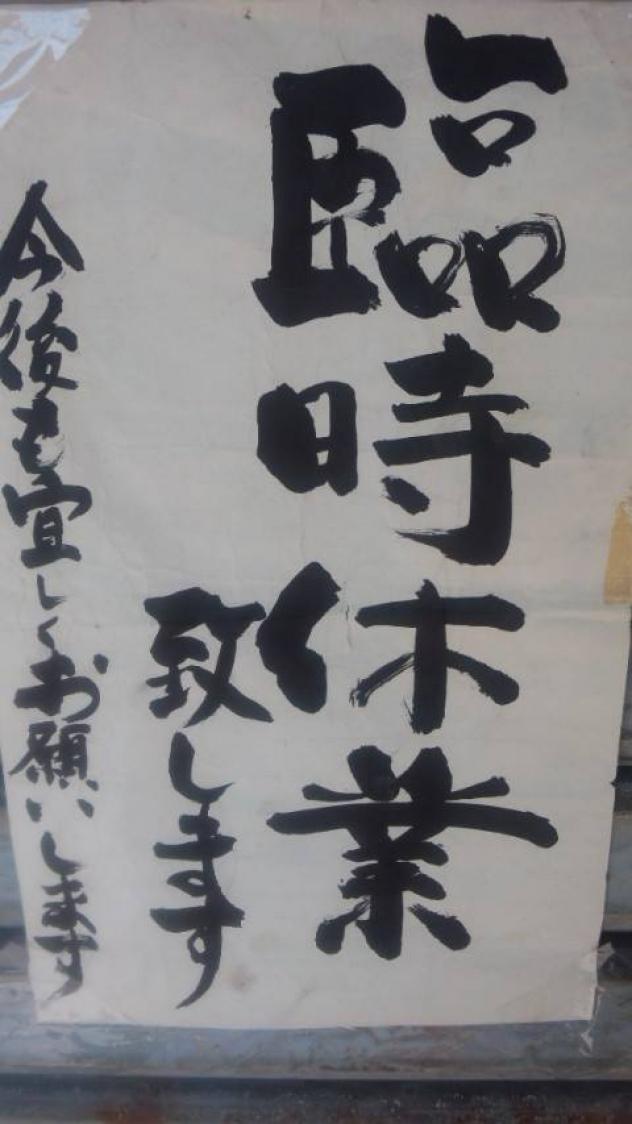 臨時休業
致します
今後も宜しくお願いします